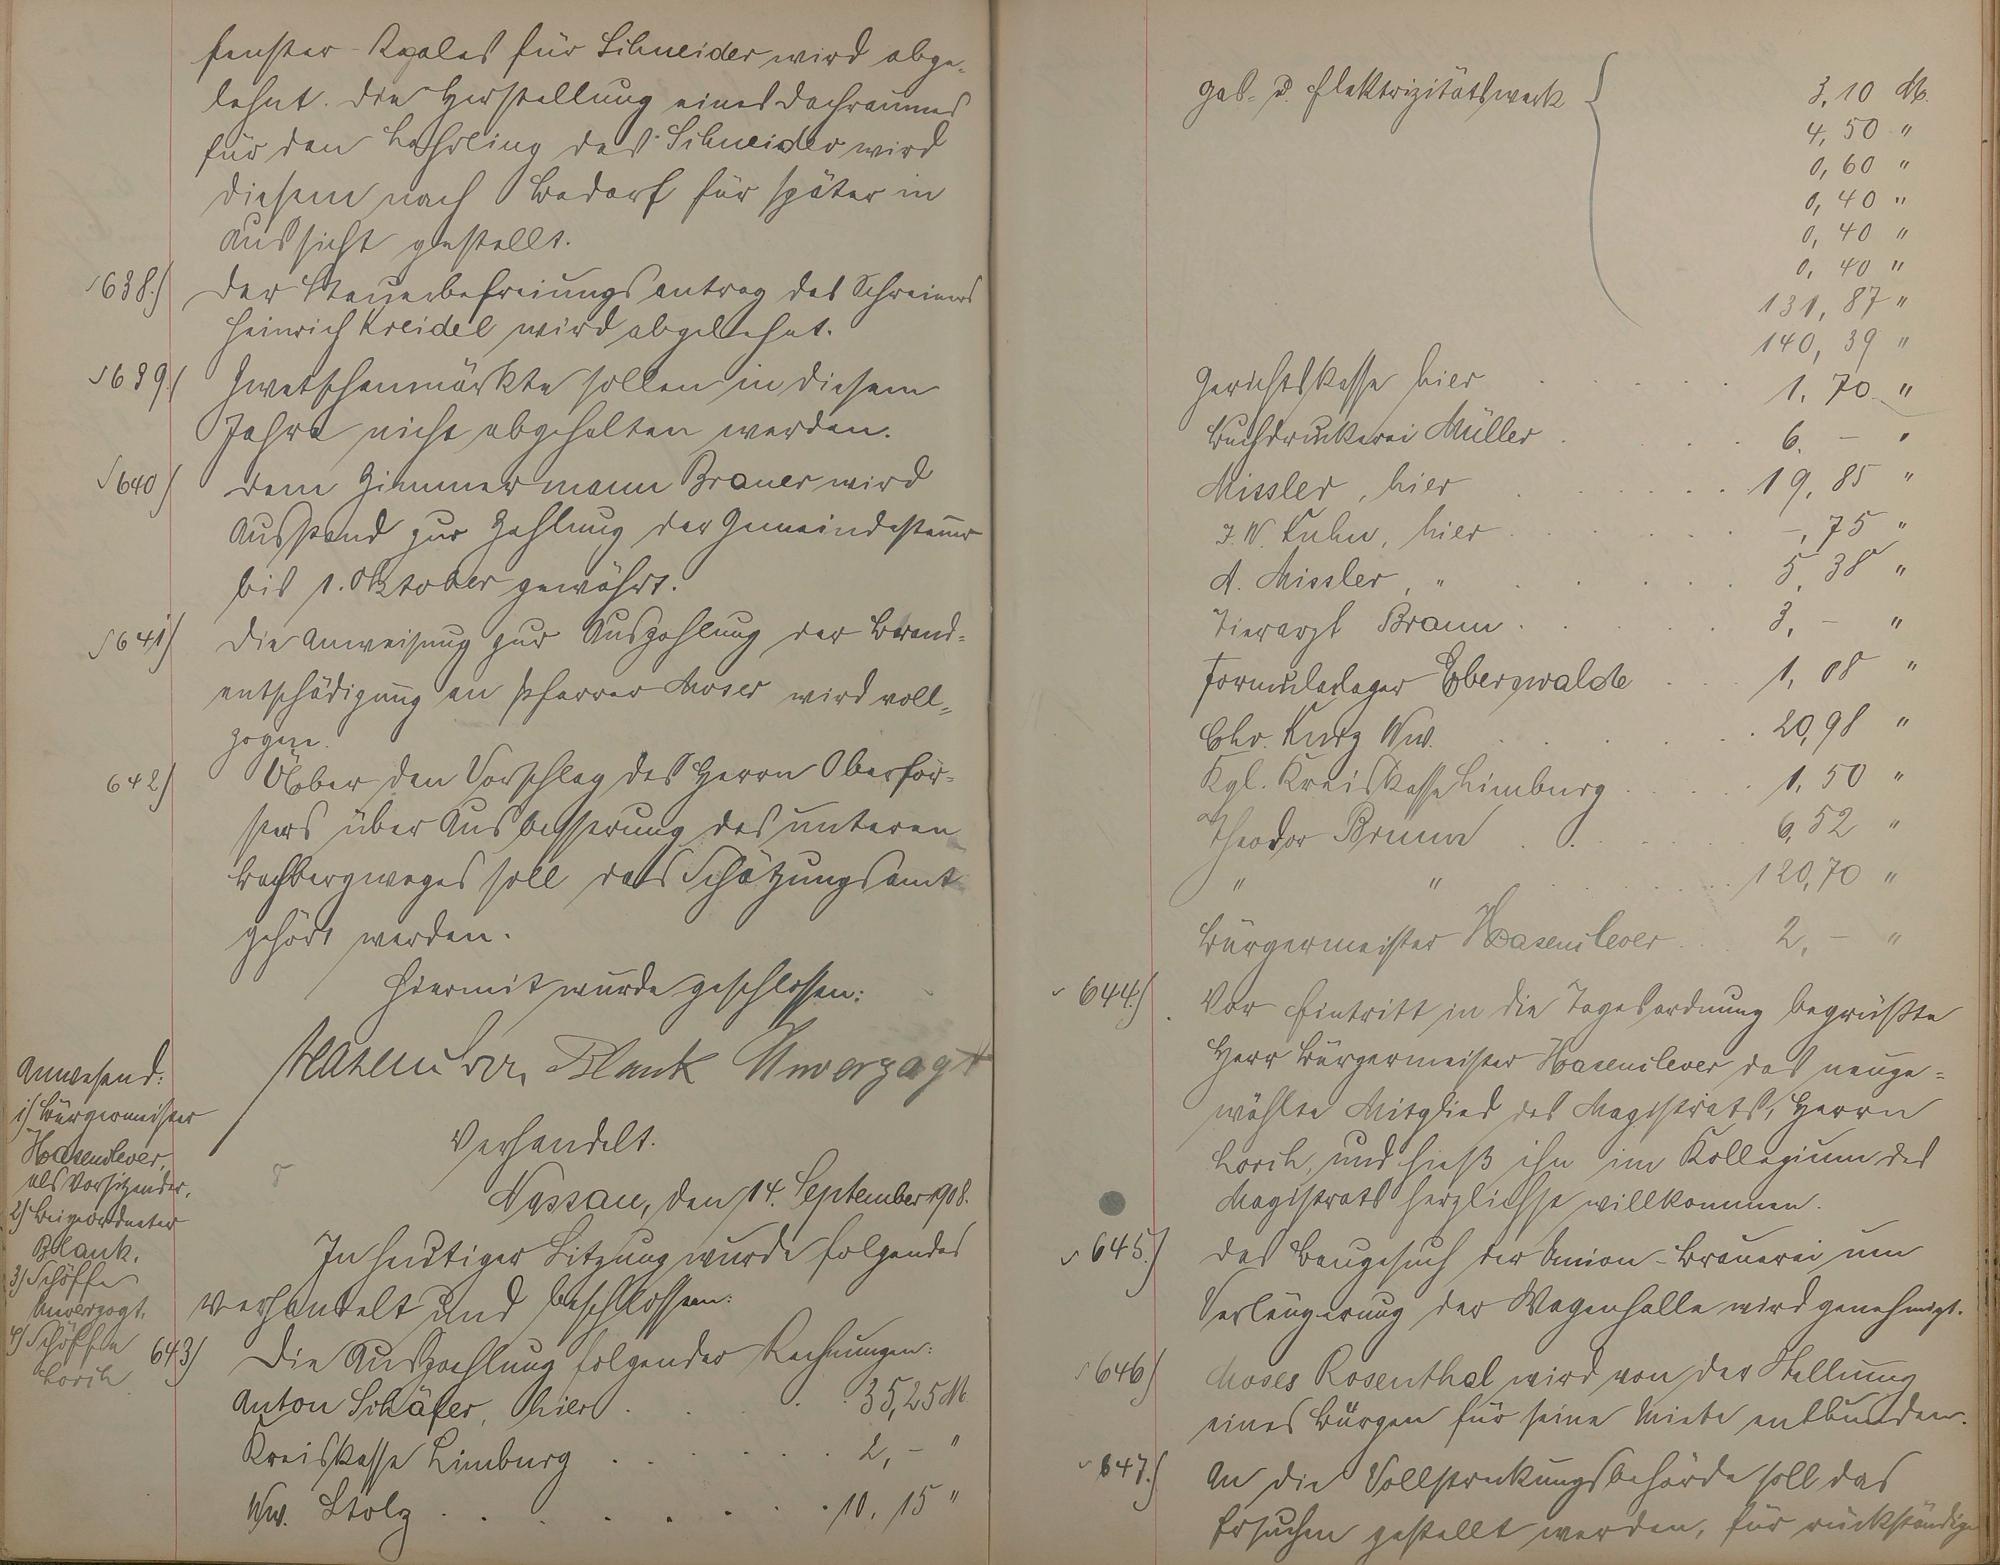 fenster-Regales für Schneider wird abge-
lehnt. Die Herstellung eines Dachraumes
für den Lehrling des Schneider wird
diesem nach Bedarf für später in
Aussicht gestellt.
§ 638.) Der Steuerbefreiungsantrag des Schreiners
Heinrich Kreidel wird abgelehnt.
§ 639.) Zwetschenmärkte sollen in diesem
Jahre nicht abgehalten werden.
§ 640) Dem Zimmermann Brauer wird
Ausstand zur Zahlung der Gemeindesteuer
bis 1. Oktober gewährt.
§ 641) Die Anweisung zur Auszahlung der Brand-
entschädigung an Pfarrer Moser wird voll-
zogen.
642) Über den Vorschlag des Herrn Oberför-
sters über Ausbesserung des unteren
Bachbergweges soll das Schätzungsamt
gehört werden.
Hiermit wurde geschlossen:
Hasenclever, Blank Unverzagt
Verhandelt.
Nassau, den 14. September 1908.
Anwesend:
1) Bürgermeister
Hasenclever,
als Vorsitzender,
2) Beigeordneter
Blank,
3) Schöffe
Unverzagt,
4) Schöffe
Lorch
In heutiger Sitzung wurde folgendes
verhandelt und beschlossen:
643) Die Auszahlung folgender Rechnungen:
Anton Schäfer, hier . . . . 35,25 M
Kreiskasse Limburg . . . . . 2,– "
Ww. Stolz . . . . . . . . 10,15 "
Gas- u. Elektrizitätswerk { 3,10 M.
4,50 "
0,60 "
0,40 "
0,40 "
0,40 "
131,87 "
140,39 "
Gerichtskasse hier . . . . . 1,70 "
Buchdruckerei Müller . . . . 6,– "
Missler, hier . . . . . . 19,85 "
J. W. Kuhn, hier . . . . . –,75 "
A. Missler, " . . . . . 5,38 "
Tierarzt Braun . . . . . 3,– "
Formularlager Eberswalde . . . 1,08 "
Chr. Kurz Ww. . . . . . . 20,98 "
Kgl. Kreiskasse Limburg . . . . . 1,50 "
Theodor Bruun . . . . . 6,52 "
" " . . . . . 120,70 "
Bürgermeister Hasenclever . . . 2,– "
644.) Vor Eintritt in die Tagesordnung begrüßte
Herr Bürgermeister Hasenclever das neuge-
wählte Mitglied des Magistrats, Herrn
Lorch, und hieß ihn im Kollegium des
Magistrats herzlichst willkommen.
§ 645.) Das Baugesuch der Union-Brauerei um
Verlängerung der Wagenhalle wird genehmigt.
§ 646) Moses Rosenthal wird von der Stellung
eines Bürgen für seine Miete entbunden.
647.) An die Vollstreckungsbehörde soll das
Ersuchen gestellt werden, für rückständige